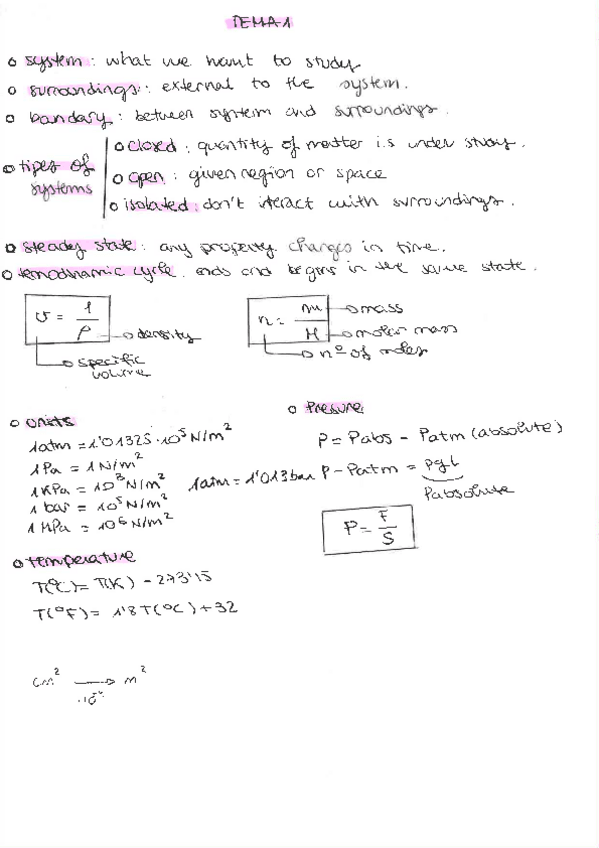 TEMA-1
system: what we want to study
surroundings: external to the system.
boundary: between system and surroundings.
types of systems
closed: quantity of matter is under study.
open: given region or space
isolated: don't interact with surroundings.
steady state: any property changes in time.
temodnamic cycle. ends and begins in the same state.
v = 1/ρ
density
specific volume
n = m/M
mass
molar mass
nº of moles
units
1atm = 1'01325·10⁵ N/m²
1Pa = 1N/m²
1KPa = 10³ N/m²
1 bar = 10⁵ N/m²
1 MPa = 10⁶ N/m²
1atm = 1'013bar
Presure
P = Pabs - Patm (absolute)
P-Patm = ρgL
Pabsolute
P = F/S
temperature
T(ºC) = T(K) - 273'15
T(ºF) = 1'8 T(ºC) + 32
cm² → m²